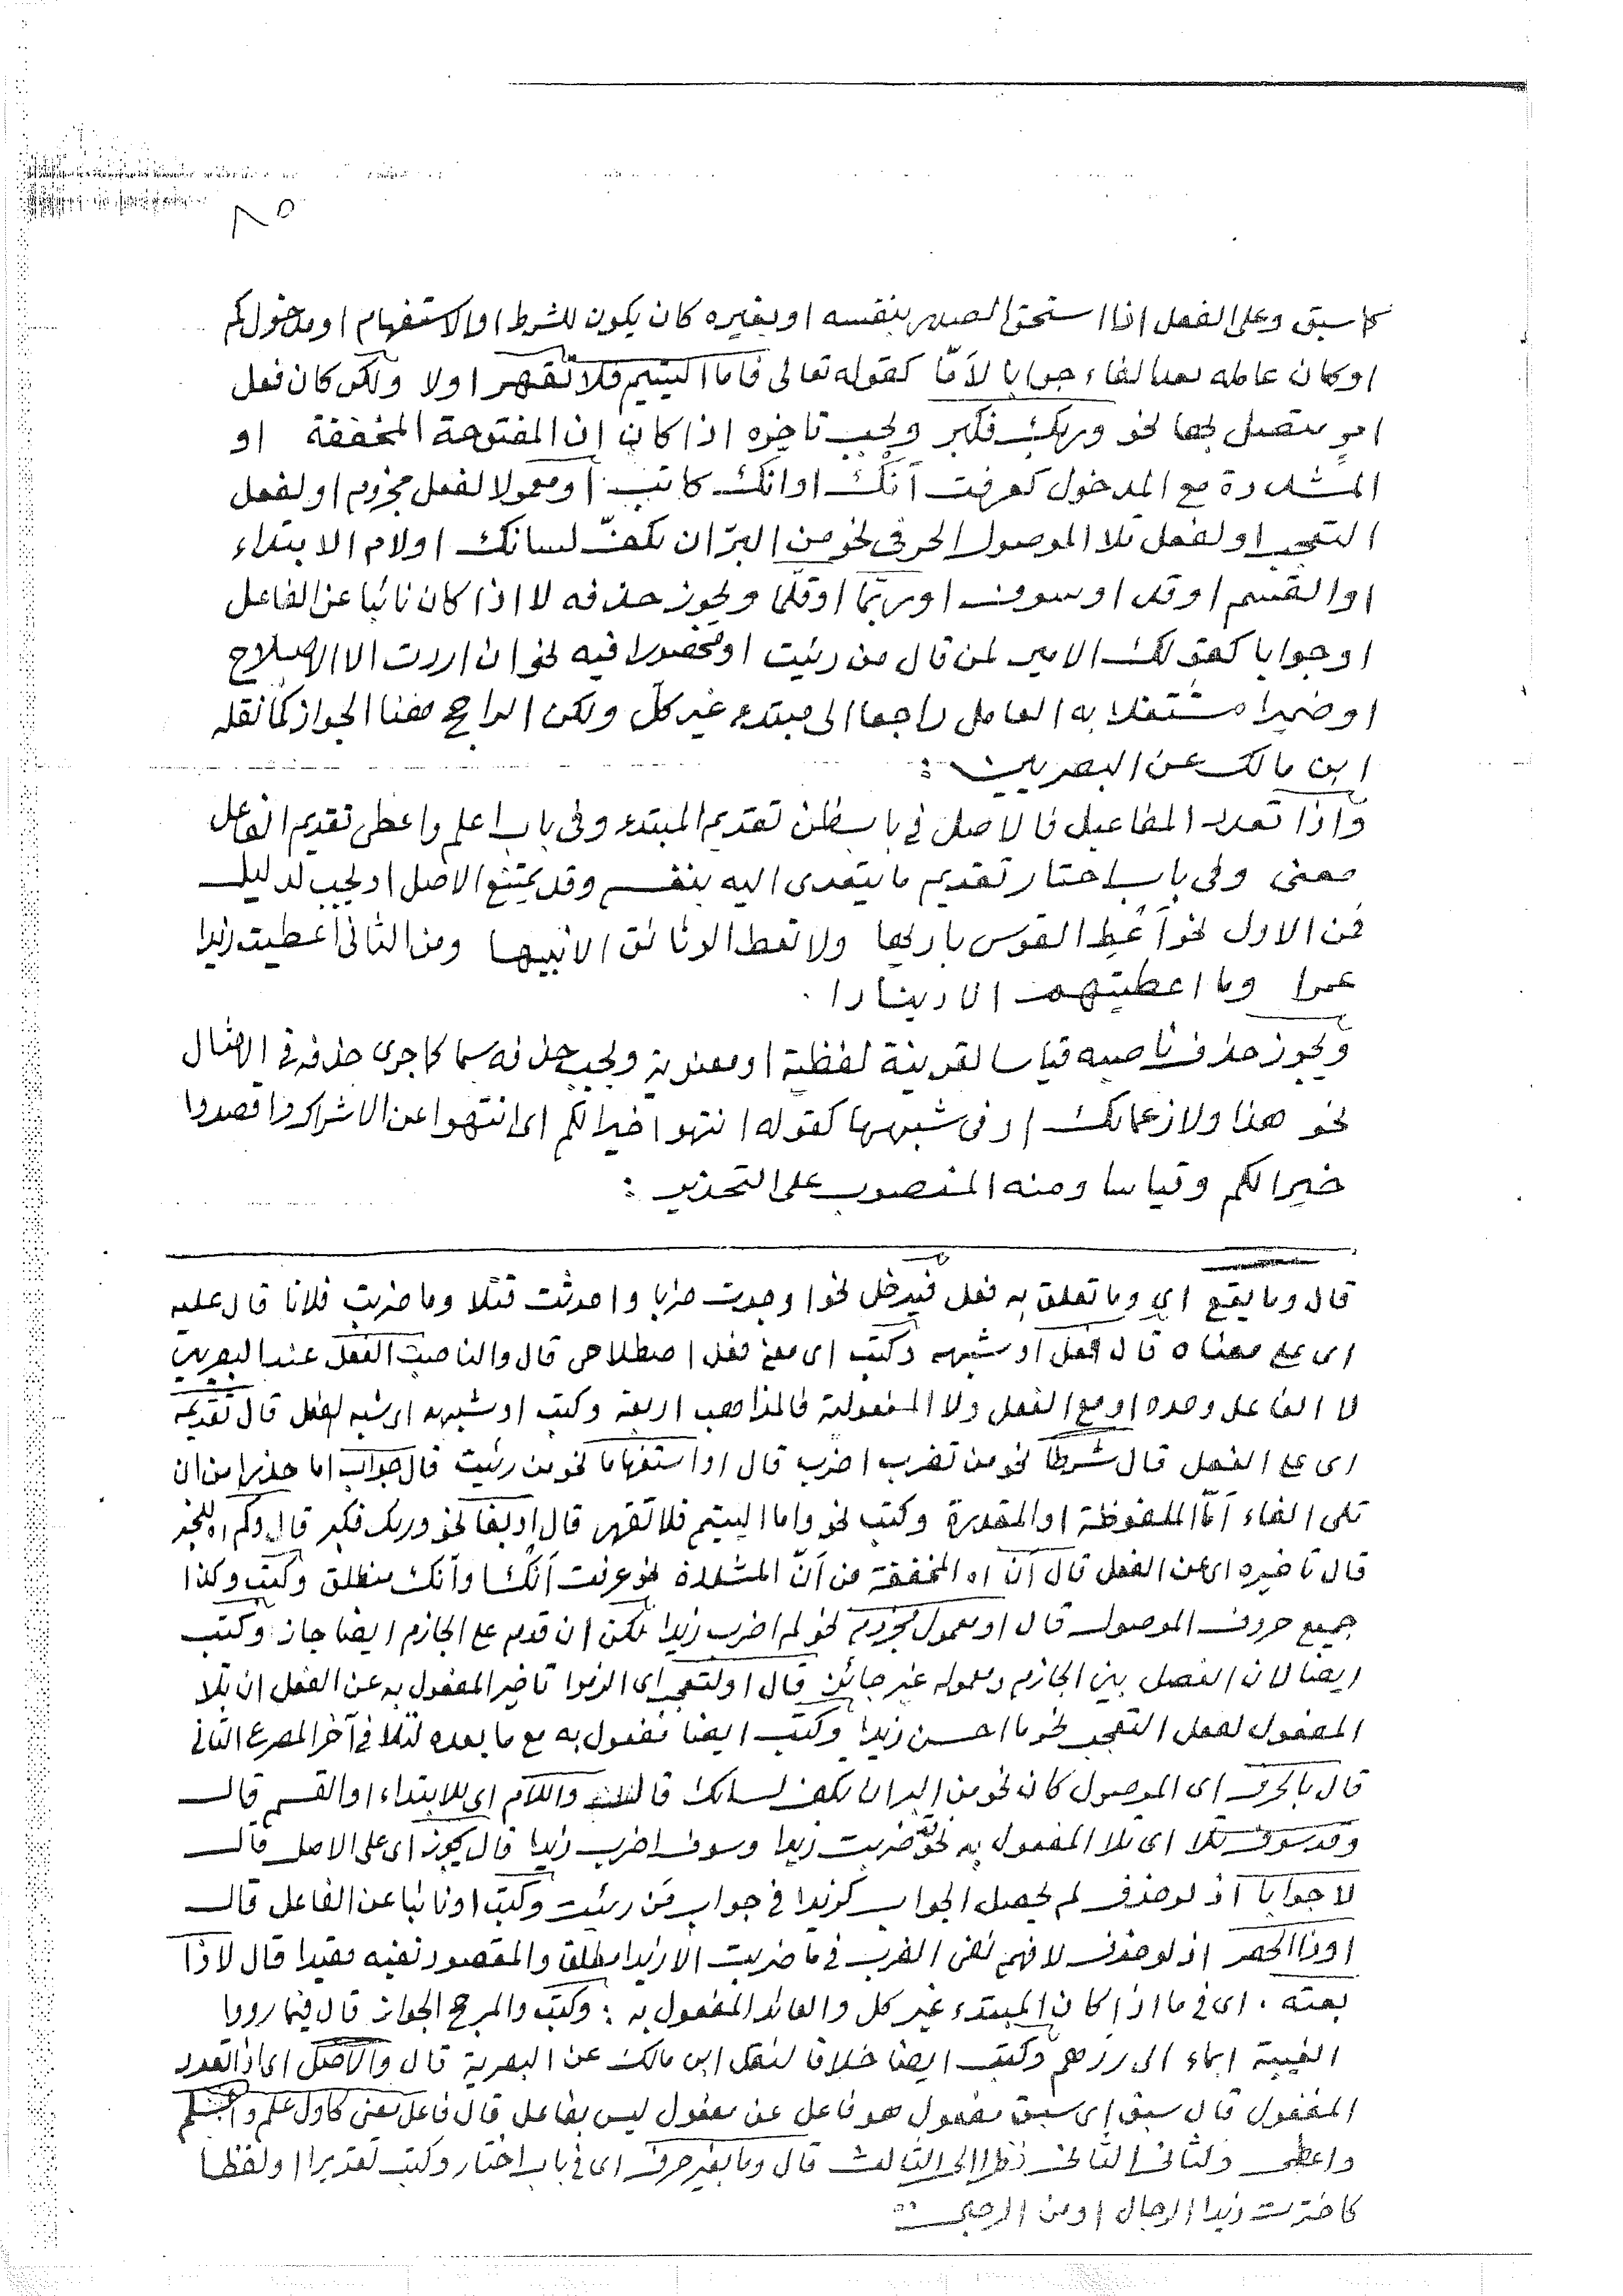 ٨٥
كما سبق وعلى الفعل اذا استحق الصدر بنفسه او بغيره كان يكون للشرط او الاستفهام او مدخول كم
او كان عامله بعد الفاء جوابا لأمّا كقوله تعالى فاما اليتيم فلا تقهر اولا ولكن كان فعل
امر يتصل بها نحو وربك فكبر ويجب تاخيره اذا كان ان المفتوحة المخففة او
المشددة مع المدخول كعرفت أنك او انك كاتب او معمولا لفعل مجزوم او لفعل
التعجب او لفعل تلا الموصول الحرفى نحو من البرّ ان تكفّ لسانك او لام الابتداء
او القسم او قد او سوف او ربّما او قلّما ويجوز حذفه لا اذا كان نائبا عن الفاعل
او جوابا كقولك الامير لمن قال من رئيت او محصورا فيه نحو ان اردت الا الاصلاح
او ضميرا مشتغلا به العامل راجعا الى مبتدء غير كلّ ولكن الراجح هنا الجواز كما نقله
ابن مالك عن البصريين :
واذا تعدد المفاعيل فالاصل فى باب ظن تقديم المبتدء وفى باب اعلم واعطى تقديم الفاعل
معنى وفى باب اختار تقديم ما يتعدى اليه بنفسه وقد يمتنع الاصل او يجب لدليل
فمن الاول نحو أعْطِ القوس باريها ولا تعط الوثائق الا نبيها ومن الثانى اعطيت زيدا
عمرا وما اعطيتهم الا دينارا .
ويجوز حذف ناصبه قياسا لقرينة لفظية او معنوية ويجب حذفه سماعا كما جرى حذفه فى الامثال
نحو هذا ولا زعماتك او فى شبهها كقوله انتهوا خيرا لكم اى انتهوا عن الاشراك واقصدوا
خيرا لكم وقياسا ومنه المنصوب على التحذير :
قال وما يقع اي وما تعلق به فعل فيدخل نحو اوجدت ضربا واحدثت قتلا وما ضربت فلانا قال عليه
اى على معناه قال فعل او شبهه وكتب اى معنى فعل اصطلاحى قال والناصب الفعل عند البصريين
لا الفاعل وحده او مع الفعل ولا المفعولية فالمذاهب اربعة وكتب او شبهه اى شبه الفعل قال تقديمه
اى على الفعل قال شرطا نحو من تضرب اضرب قال او استفهاما نحو من رئيت قال جواب اما حذرا من ان
تلى الفاء أمّا الملفوظة او المقدرة وكتب نحو واما اليتيم فلا تقهر قال او بفا نحو وربك فكبر قال وكم اه للخبر
قال تاخيره اى عن الفعل قال أن اه المخففة من أنّ المشددة نحو عرفت أنك او أنك منطلق وكتب وكذا
جميع حروف الموصول قال او معمول مجزوم نحو لم اضرب زيدا لكن ان قدم على الجازم ايضا جاز وكتب
ايضا لان الفصل بين الجازم ومعموله غير جائز قال او لتعجب اى الزموا تاخير المفعول به عن الفعل ان تلا
المفعول لفعل التعجب نحو ما احسن زيدا وكتب ايضا مفعول به مع ما بعده لتلا فى آخر المصرع الثانى
قال بالحرف اى الموصول كان نحو من البر ان تكف لسانك قال واللام اى للابتداء او القسم قال
وقد سوف تلا اى تلا المفعول به نحو قد ضربت زيدا وسوف اضرب زيدا قال يجوز اى على الاصل قال
لا جوابا اذ لو حذف لم يحصل الجواب كزيدا فى جواب مَن رئيت وكتب او نائبا عن الفاعل قال
او ذا الحصر اذ لو حذف لافهم نفى الضرب فى ما ضربت الا زيدا مطلقا والمقصود نفيه مقيدا قال لا ذا
بعته . اى فى ما اذا كان المبتدء غير كل والعائد المفعول به : وكتب والمرجح الجواز قال فيما رووا
الغيبة ايماء الى ردهم وكتب ايضا خلافا لنقل ابن مالك عن البصرية قال والاصل اى اذا تعدد
المفعول قال سبق اى سبق مفعول هو فاعل عن مفعول ليس بفاعل قال فاعل معنى كاول علم واعلم
واعطى ولثانى الثانى نظرا الى الثالث قال وما بغير حرف اى فى باب اختار وكتب تقديرا او لفظا
كاخترت زيدا الرجال او من الرجال